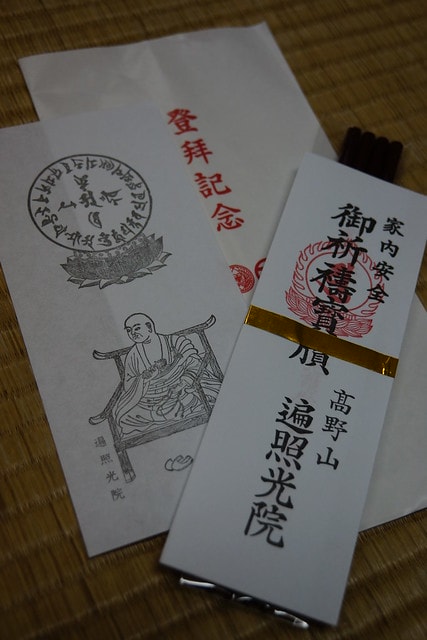 登拝記念
遍照光院
家内安全
御祈禱寶牘
高野山
遍照光院